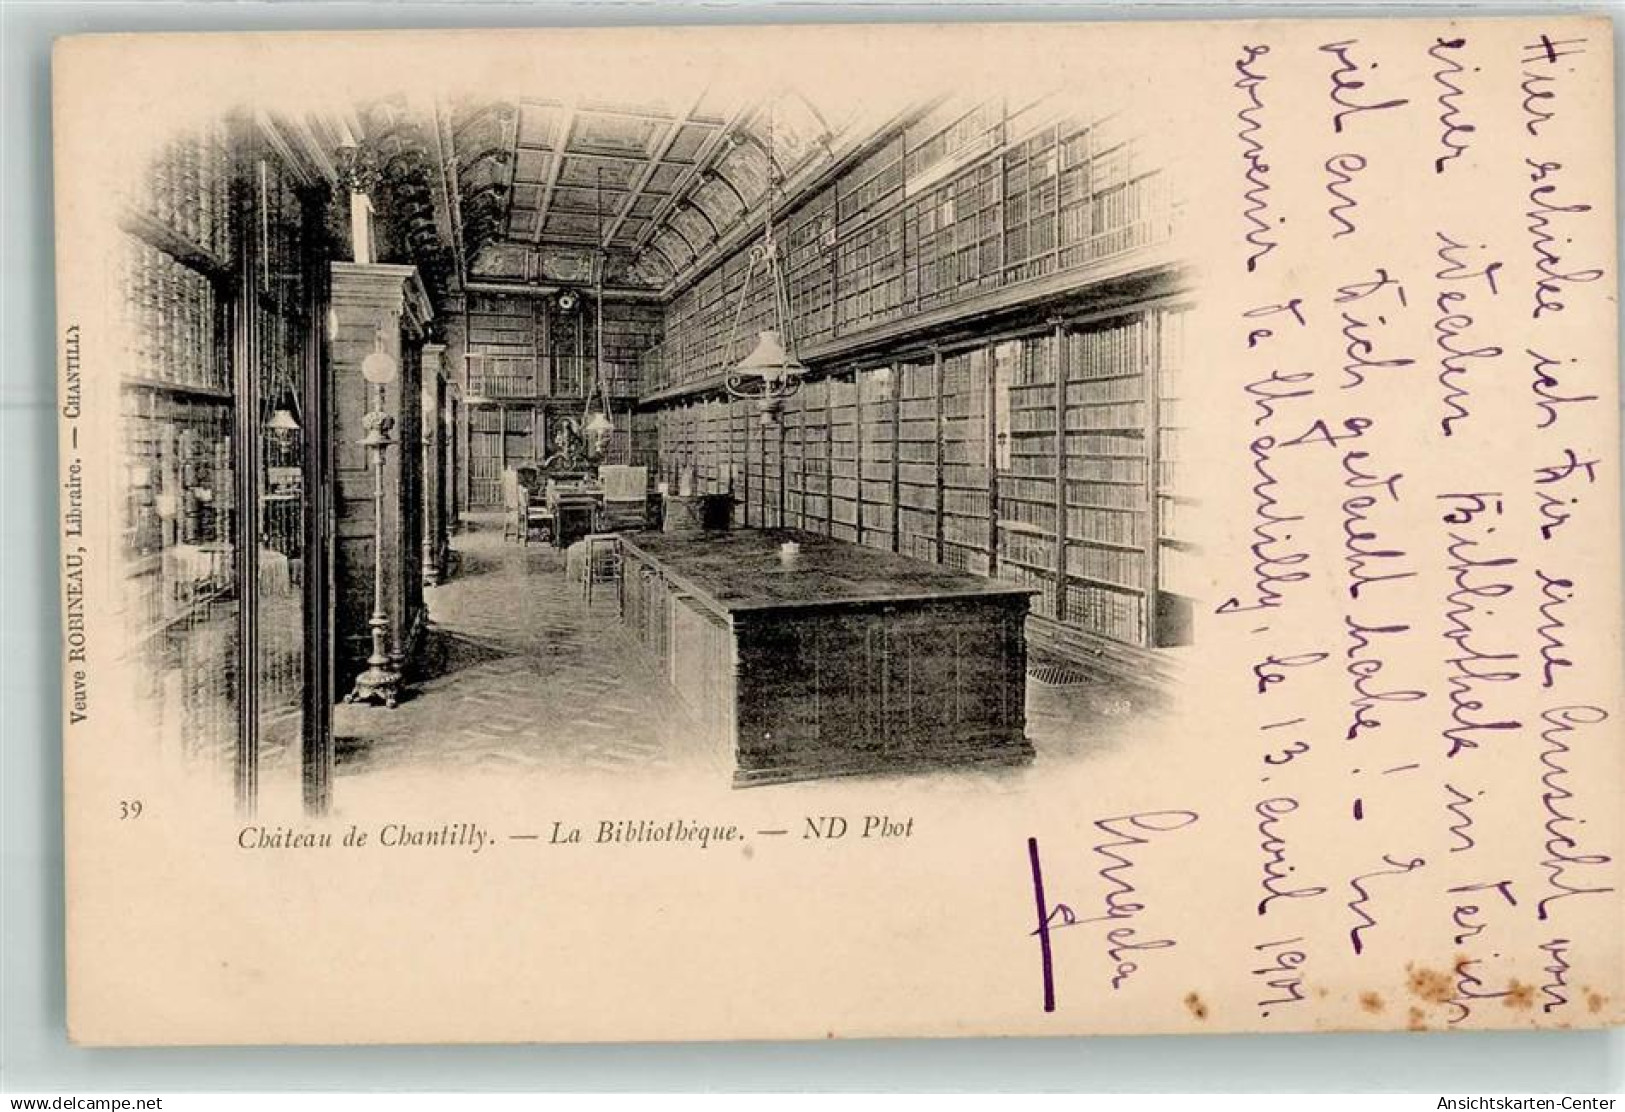 Veuve ROBINEAU, Libraire. — CHANTILLY
39
Château de Chantilly. — La Bibliothèque. — ND Phot
Hier schicke ich Dir eine Ansicht von
einer idealen Bibliothek in der ich
viel an Dich gedacht habe! — En
souvenir de Chantilly, le 13. avril 1901.
Angela
Ansichtskarten-Center